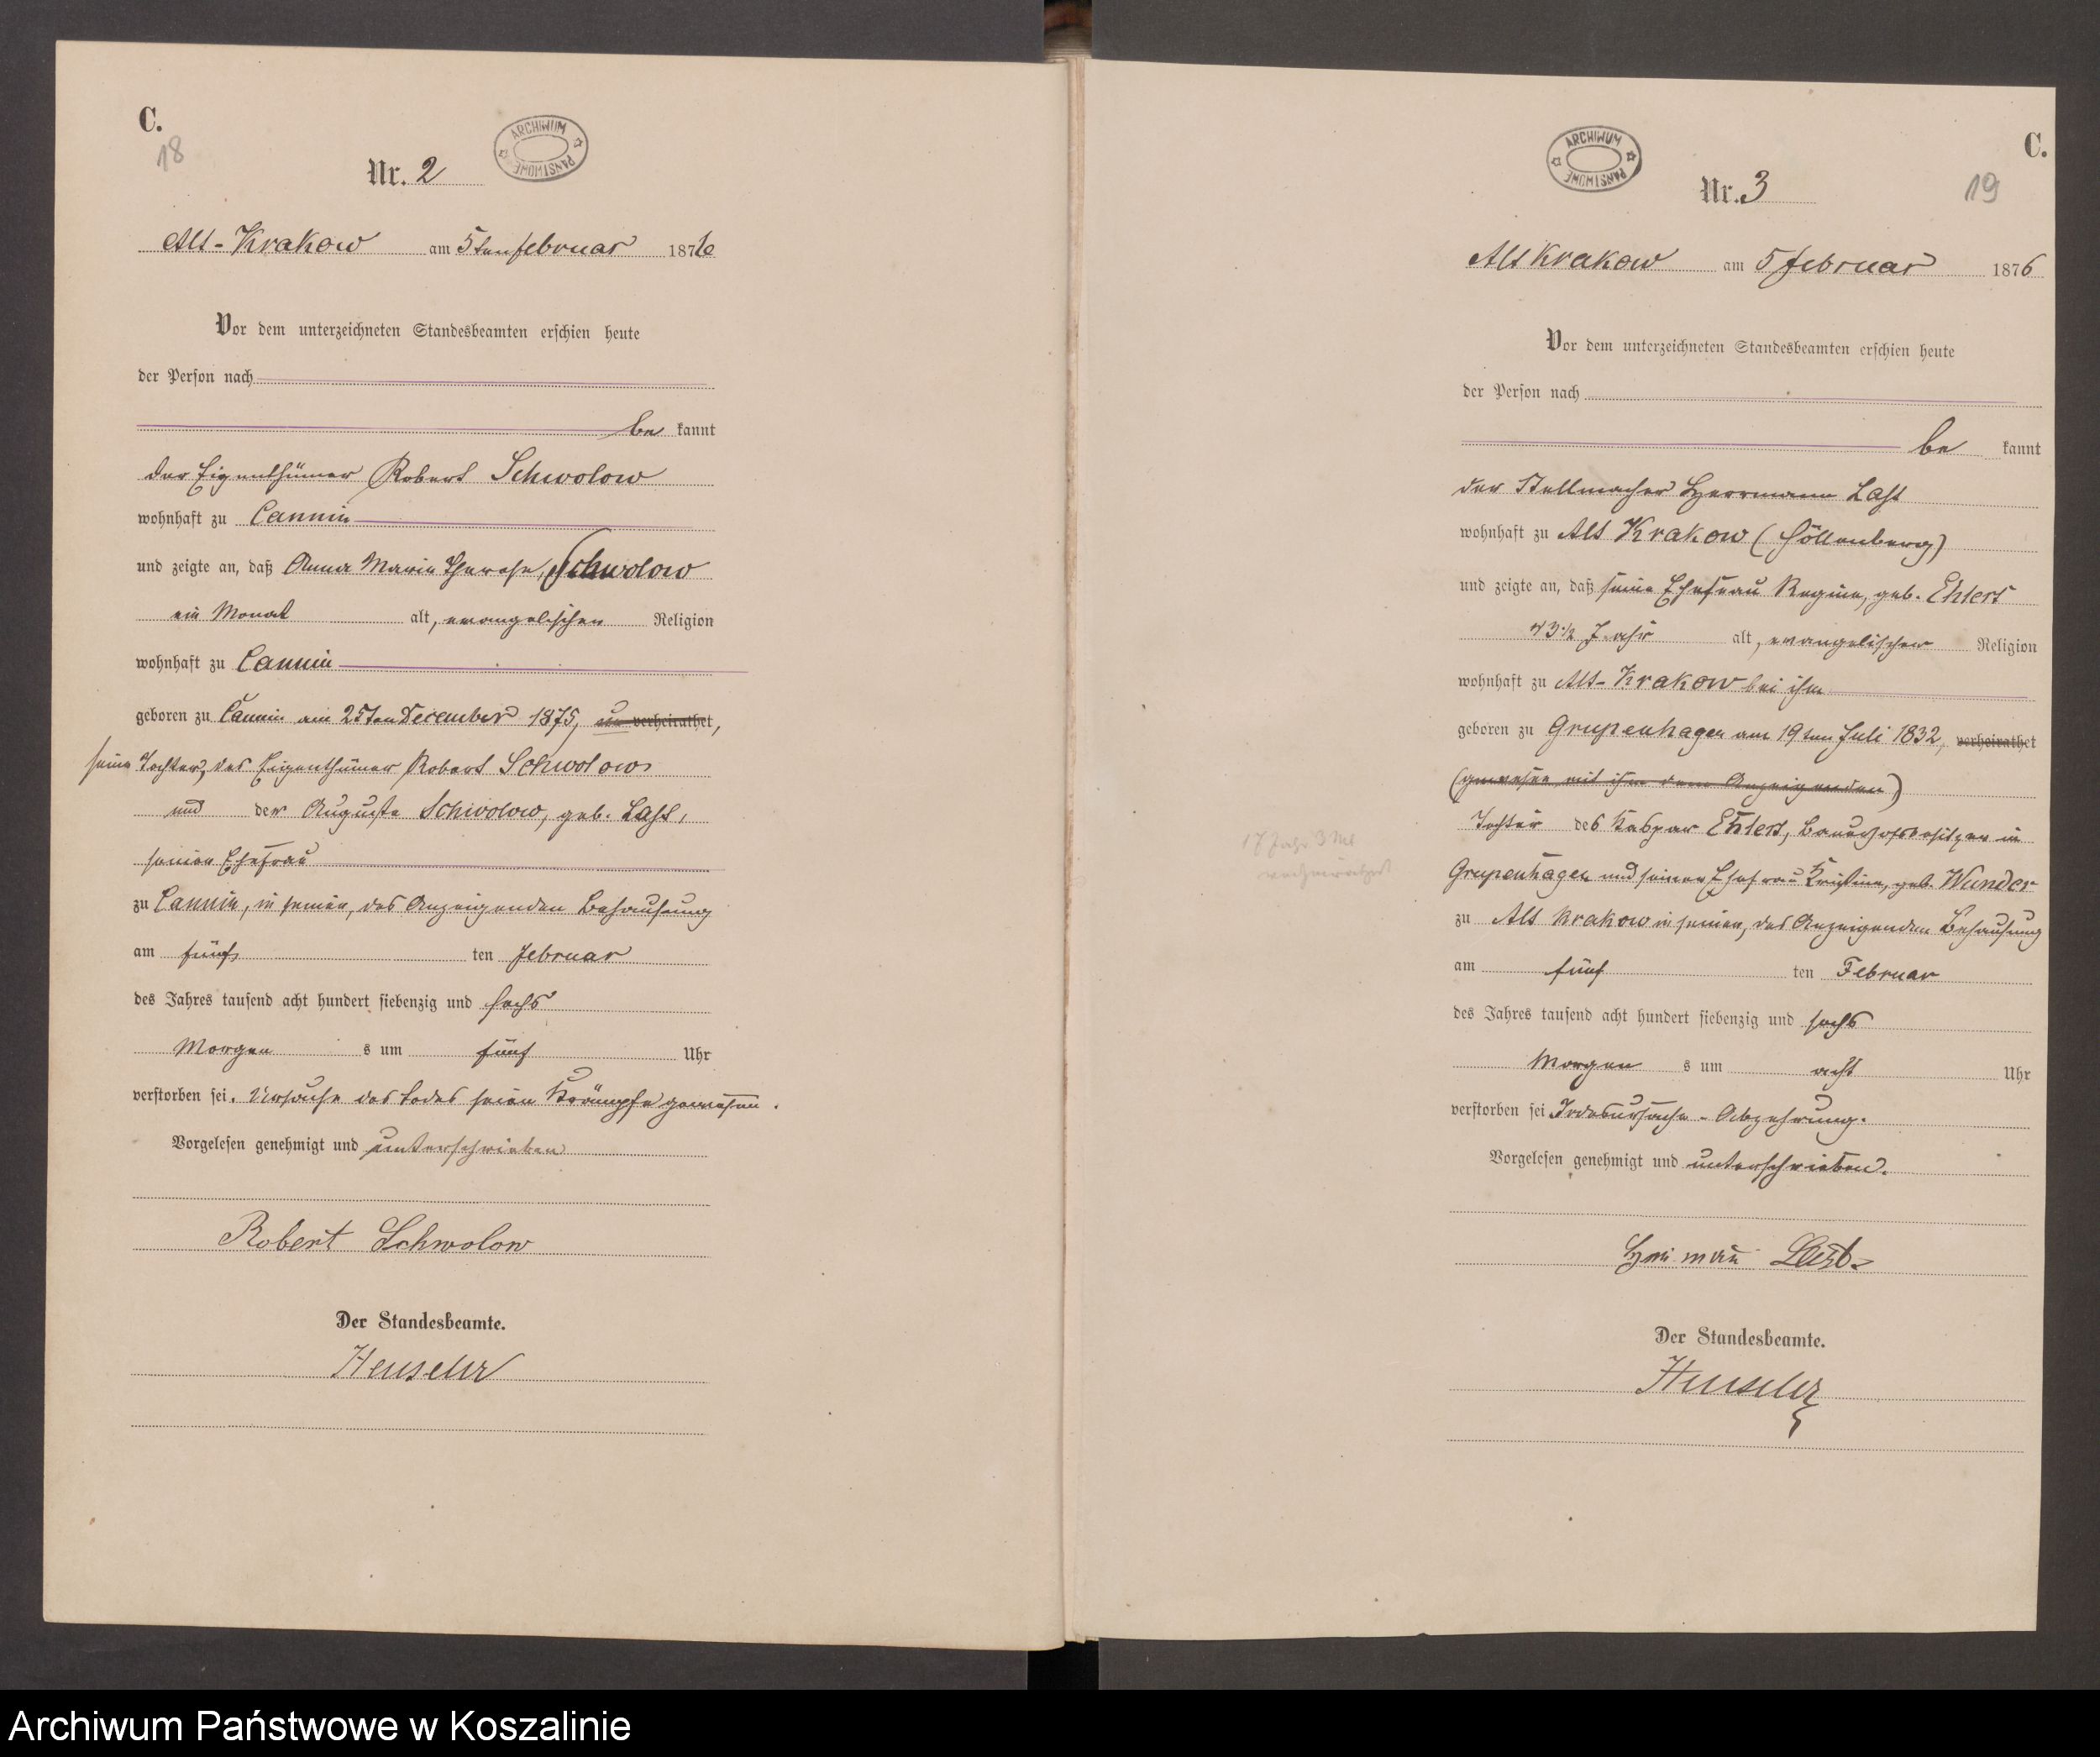 C.
18
ARCHIWUM PAŃSTWOWE
Nr. 2
Alt-Krakow am 5ten Februar 1876
Vor dem unterzeichneten Standesbeamten erschien heute
der Person nach
be kannt
der Eigenthümer Robert Schwolow
wohnhaft zu Cannin
und zeigte an, daß Anna Marie Therese, Schwolow
ein Monat alt, evangelischen Religion
wohnhaft zu Cannin
geboren zu Cannin am 25ten December 1875, un verheirathet,
seine Tochter, des Eigenthümer Robert Schwolow
und der Auguste Schwolow, geb. Last,
seiner Ehefrau
zu Cannin, in seiner, des Anzeigenden Behausung
am fünf ten Februar
des Jahres tausend acht hundert siebenzig und sechs
Morgen s um fünf Uhr
verstorben sei. Ursache des Todes seien Krämpfe gewesen.
Vorgelesen genehmigt und unterschrieben
Robert Schwolow
Der Standesbeamte.
C.
19
ARCHIWUM PAŃSTWOWE
Nr. 3
Alt Krakow am 5 Februar 1876
Vor dem unterzeichneten Standesbeamten erschien heute
der Person nach
be kannt
der Stellmacher Herrmann Last
wohnhaft zu Alt Krakow (Höllenberg)
und zeigte an, daß seine Ehefrau Regine, geb. Ehlert
43 1/2 Jahr alt, evangelischer Religion
wohnhaft zu Alt-Krakow bei ihm
geboren zu Grupenhagen am 19ten Juli 1832, verheirathet
(gewesen mit ihm dem Anzeigenden)
Tochter des Kaspar Ehlert, Bauerhofsbesitzer in
Grupenhagen und seiner Ehefrau Kristine, geb. Wunder
zu Alt Krakow in seiner, des Anzeigenden Behausung
am fünf ten Februar
des Jahres tausend acht hundert siebenzig und sechs
Morgen s um acht Uhr
verstorben sei Todesursache - Abzehrung.
Vorgelesen genehmigt und unterschrieben.
Herman Last
Der Standesbeamte.
17 Jahr 3 Mt
Archiwum Państwowe w Koszalinie